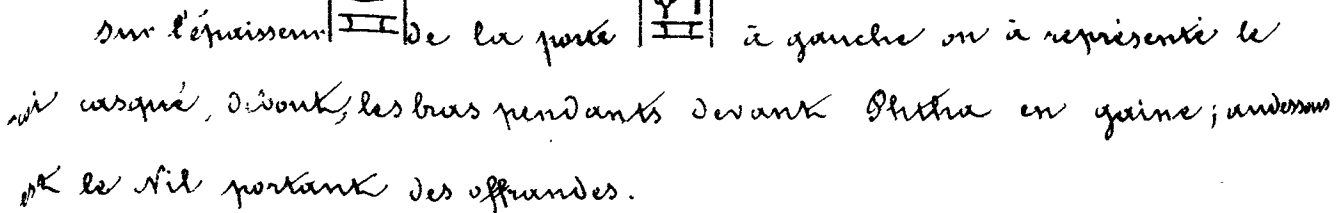 sur l'épaisseur de la porte à gauche on à représenté le
roi casqué, debout, les bras pendants devant Phtha en gaine; audessous
est le Nil portant des offrandes.